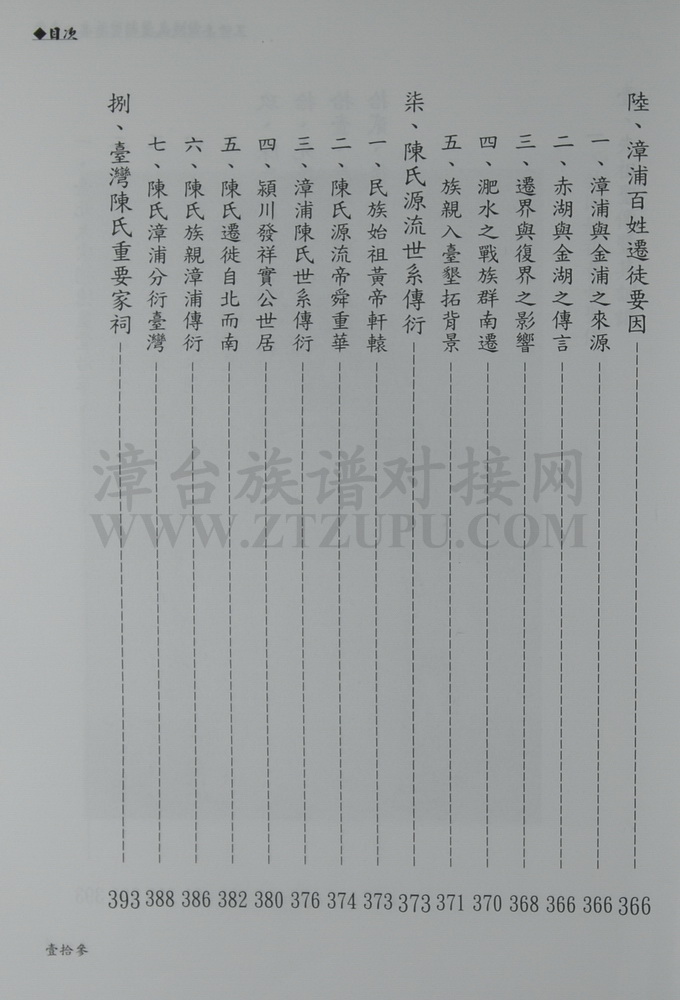 ◆目次
陸、漳浦百姓遷徒要因 366
一、漳浦與金浦之來源 366
二、赤湖與金湖之傳言 366
三、遷界與復界之影響 368
四、淝水之戰族群南遷 370
五、族親入臺墾拓背景 371
柒、陳氏源流世系傳衍 373
一、民族始祖黃帝軒轅 373
二、陳氏源流帝舜重華 374
三、漳浦陳氏世系傳衍 376
四、潁川發祥實公世居 380
五、陳氏遷徙自北而南 382
六、陳氏族親漳浦傳衍 386
七、陳氏漳浦分衍臺灣 388
捌、臺灣陳氏重要家祠 393
壹拾參
漳台族谱对接网
WWW.ZTZUPU.COM